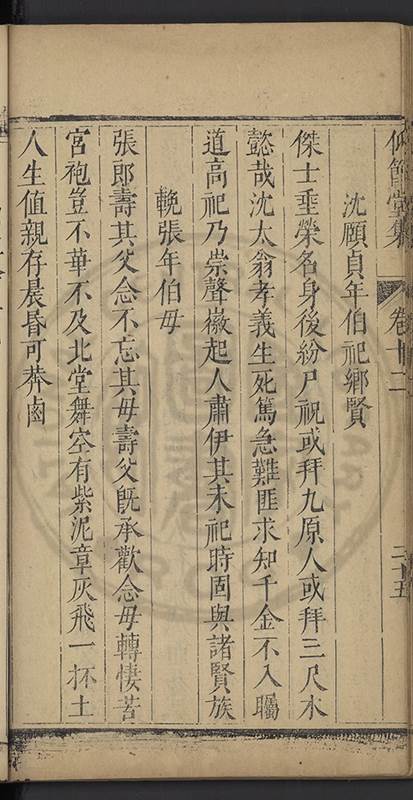 仰節堂集
卷十二
二十五
沈頤貞年伯祀鄉賢
傑士垂榮名身後紛尸祝或拜九原人或拜三尺木
懿哉沈太翁孝義生死篤急難匪求知千金不入矚
道高祀乃崇聲徽起人肅伊其未祀時固與諸賢族
輓張年伯母
張郎壽其父念不忘其母壽父既承歡念母轉悽苦
宮袍豈不華不及北堂舞空有紫泥章灰飛一抔土
人生值親存晨昏可莽鹵